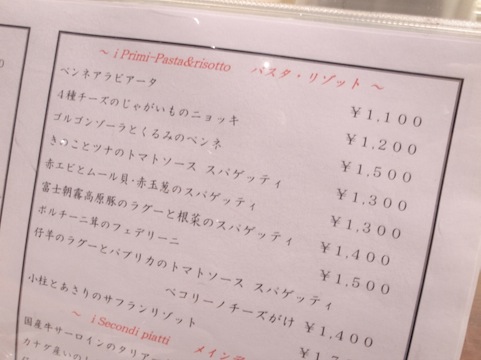 ~ i Primi-Pasta&risotto パスタ・リゾット ~
ペンネアラビアータ ¥1,100
4種チーズのじゃがいものニョッキ ¥1,200
ゴルゴンゾーラとくるみのペンネ ¥1,500
きのことツナのトマトソース スパゲッティ ¥1,300
赤エビとムール貝・赤玉葱のスパゲッティ ¥1,300
富士朝霧高原豚のラグーと根菜のスパゲッティ ¥1,400
ポルチーニ茸のフェデリーニ ¥1,500
仔羊のラグーとパプリカのトマトソース スパゲッティ
ペコリーノチーズがけ ¥1,400
小柱とあさりのサフランリゾット
~ i Secondi piatti メイン
国産牛サーロインのタリア
カナダ産い